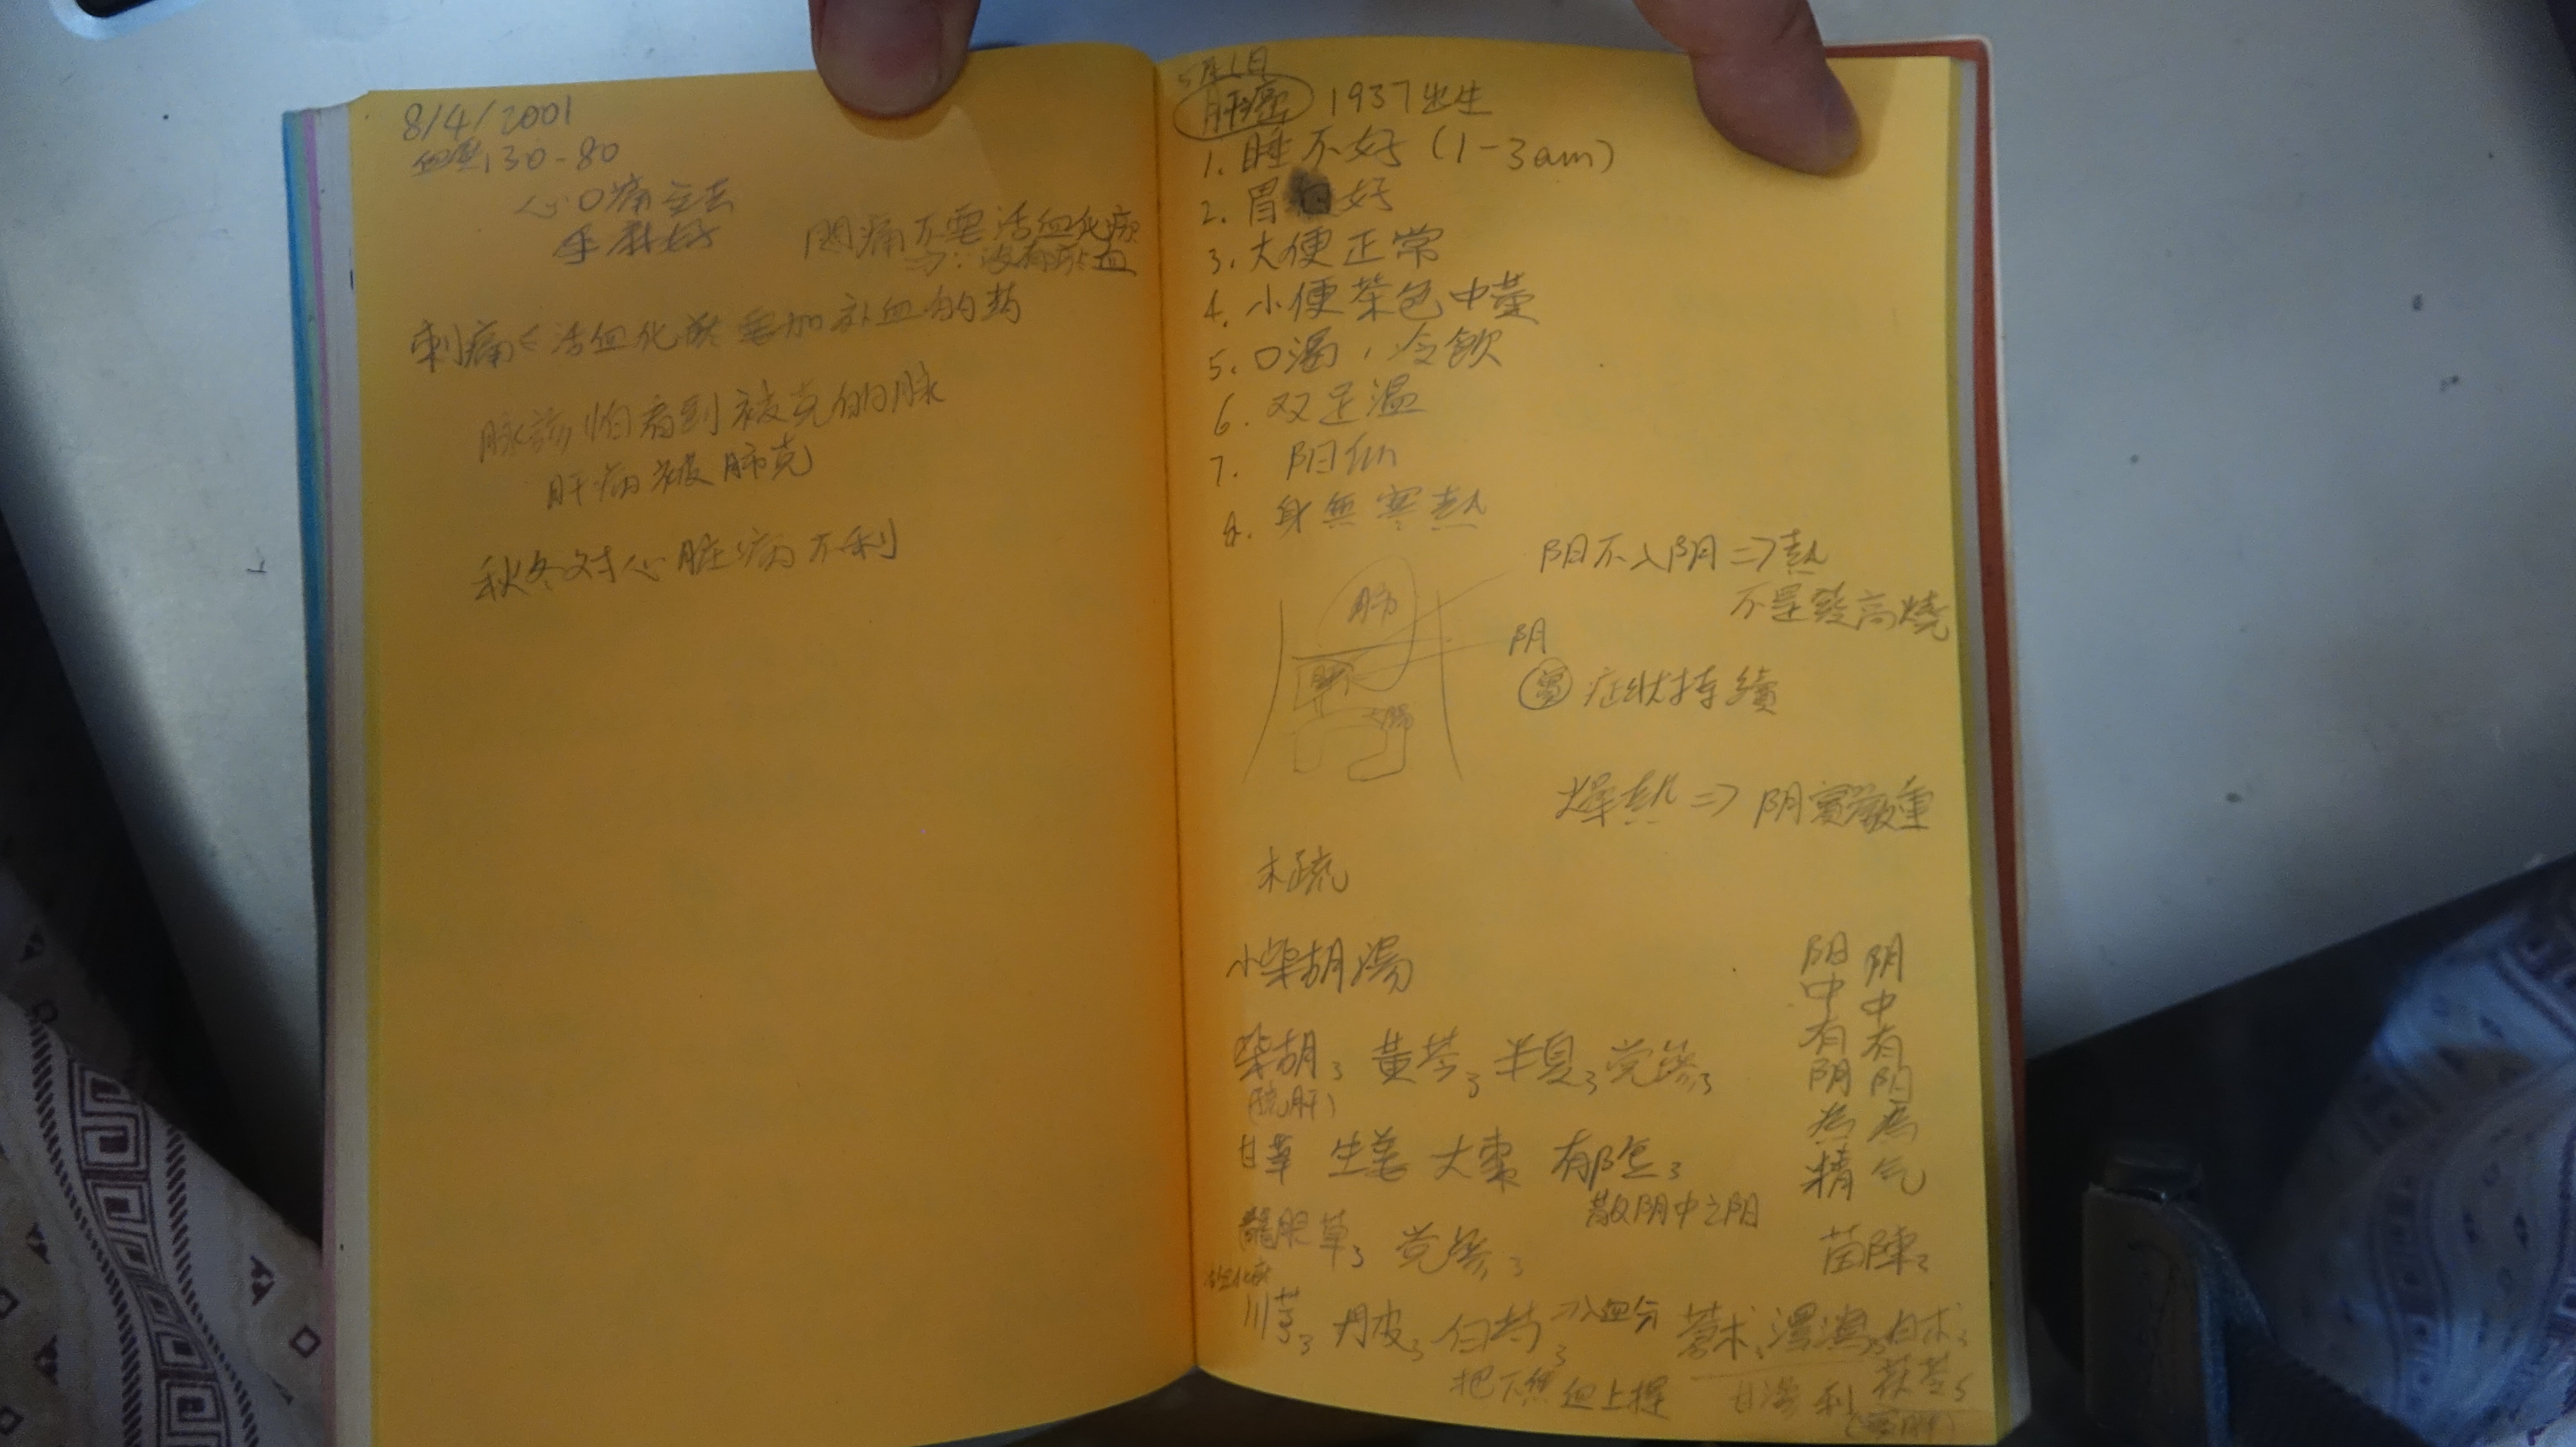 8/4/2001
血壓130-80
心口痛
悶痛不要活血化瘀
沒有瘀血
刺痛 活血化瘀 要加补血的药
脉 怕看到被克的脉
肝病被肺克
秋冬对心脏病不利
5月1日
肝癌 1937出生
1. 睡不好(1-3am)
2. 胃口好
3. 大便正常
4. 小便茶色中黃
5. 口渴，冷飲
6. 双足温
7. 阳
8. 身無寒熱
肺
肝
大腸
阳不入阴⇒熱
不是發高燒
阴
症状持續
燥熱⇒阴實嚴重
木疏
小柴胡湯
柴胡3 黃芩3 半夏3 党參3
(疏肝)
甘草 生姜 大棗 郁金3
散阴中之阳
龍胆草3 党參3
茵陳2
阳中有阴為精
阴中有阳為气
活血化瘀
川芎3 丹皮3 白芍3 入血分
把下焦血上提
澤瀉3 白朮3
茯苓5